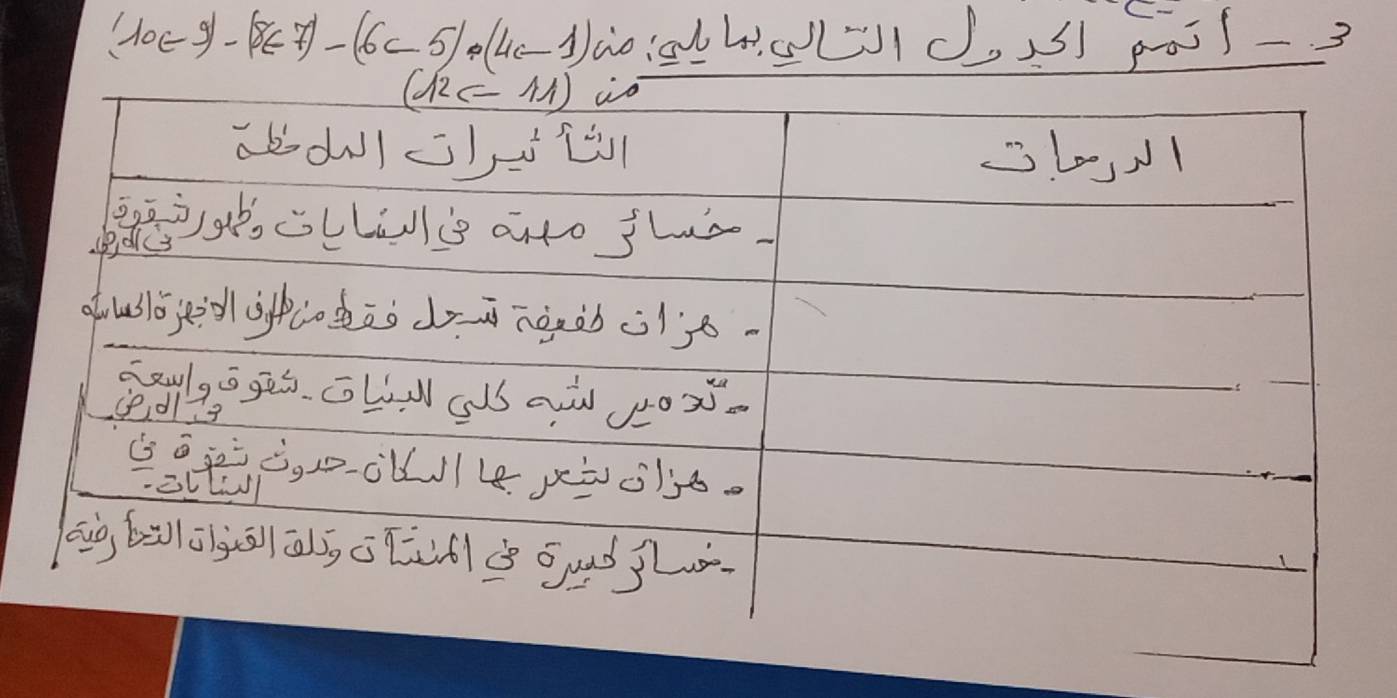 3 - أتمم الجدول التالي بما يلي: من (1 → 4) • (5 → 6) - (7 → 8) - (9 → 10)
من (11 → 12)
الدرجات التأثيرات الملاحظة
- خسائر مهمة في البنايات وظهور شقوق في الارض.
- هزات طفيفة تسجل فقط من طرف الاجهزة الحساسة
- تدمير شبه كلي للبنيات - شقوق واسعة في الارض
- هزات يشعر بها السكان - حدوث شقوق في البنايات -
- خسائر كبيرة في المنشآت وتلف القنوات التحأرضية